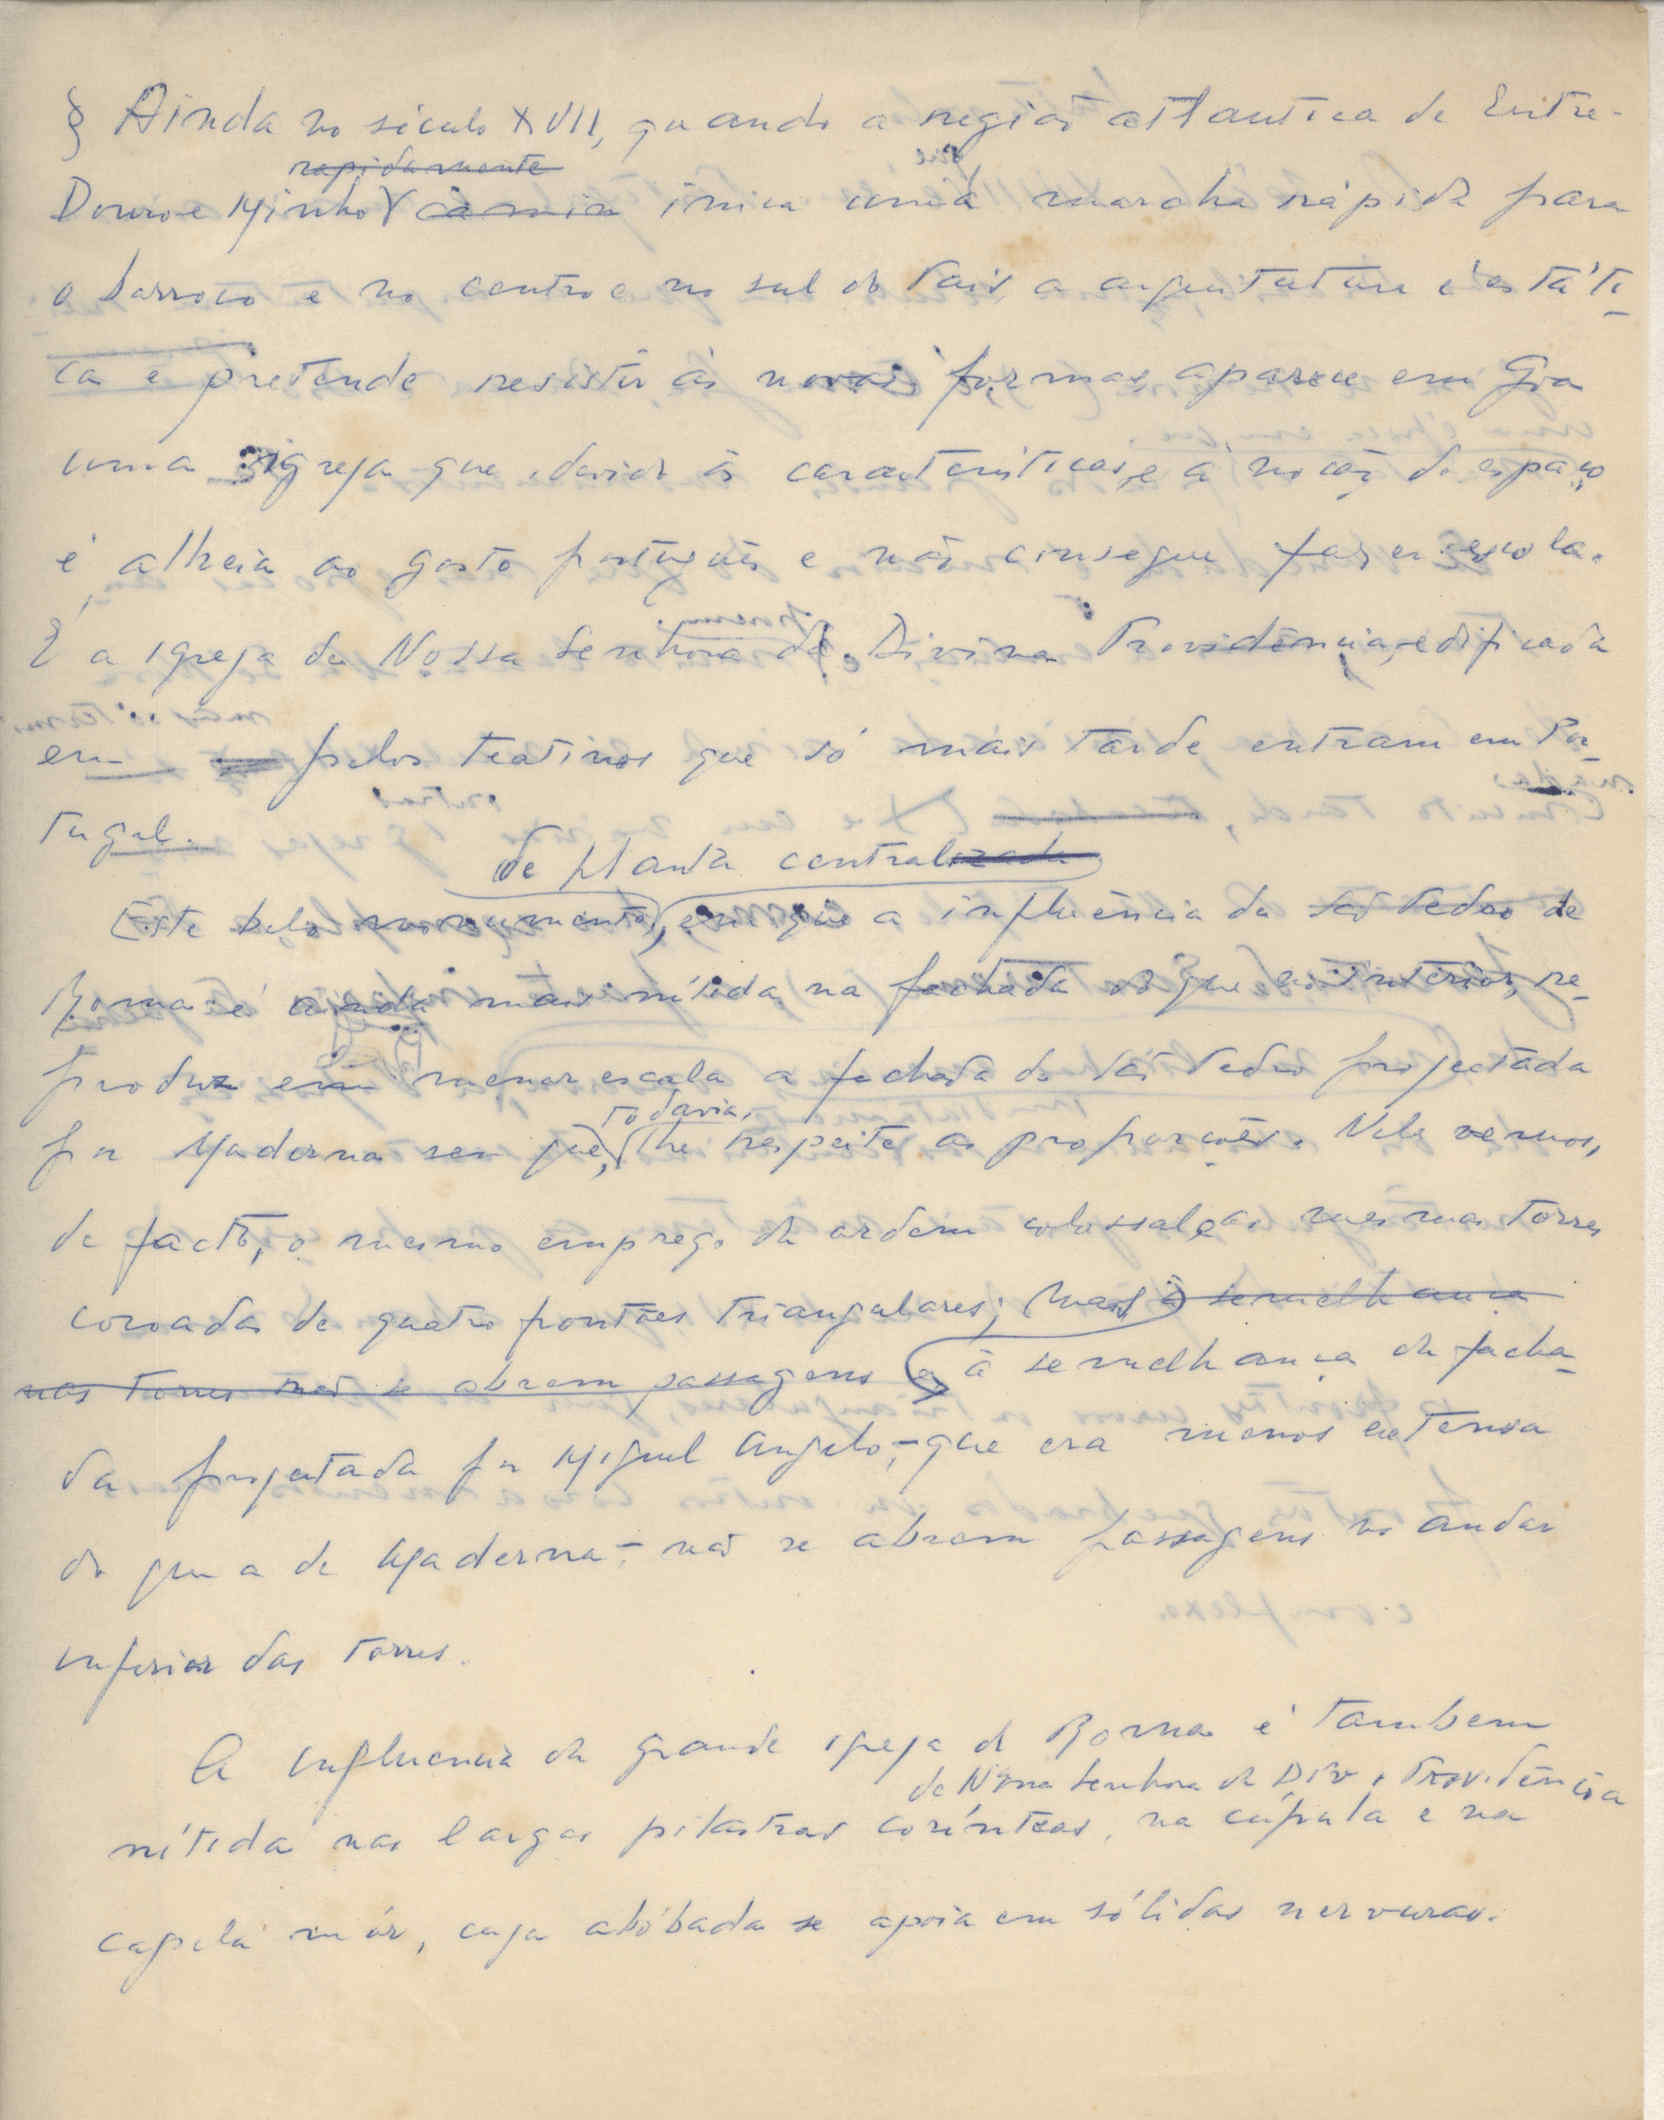 § Ainda no século XVII, quando a região atlantica de Entre-
rapidamente
Douro e Minho camin inicia uma marcha rápida para
o barroco e no centro e no sul do País, a arquitetura é estáti-
ca e pretende resistir ás novas formas, aparece em Goa
uma igreja que, devido ás caracteristicas, e á noção do espaço
é alheia ao gosto português e não consegue fazer escola.
É a igreja da Nossa Senhora da Divina Providência, edificada
em pelos teatinos que só mais tarde entram em Por-
tugal.
de planta centralizada
Este belo monumento, em que a influência da São Pedro de
Roma é ainda mais nítida na fachada do que no interior, re-
produz em menor escala a fachada de São Pedro projectada
todavia,
por Maderna sem que, lhe respeite as proporções. Nele vemos,
de facto, o mesmo emprego da ordem colossal e as mesmas torres
coroadas de quatro frontões triangulares; mas à semelhança
nas torres não se abrem passagens e à semelhança da facha-
da projectada por Miguel Angelo, - que era menos extensa
do que a de Maderna - não se abrem passagens no andar
inferior das torres.
A influencia da grande igreja de Roma é tambem
de Nossa Senhora da Div. Providência
nítida nas largas pilastras coríntias, na cúpula e na
capela mór, cuja abóbada se apoia em sólidas nervuras.